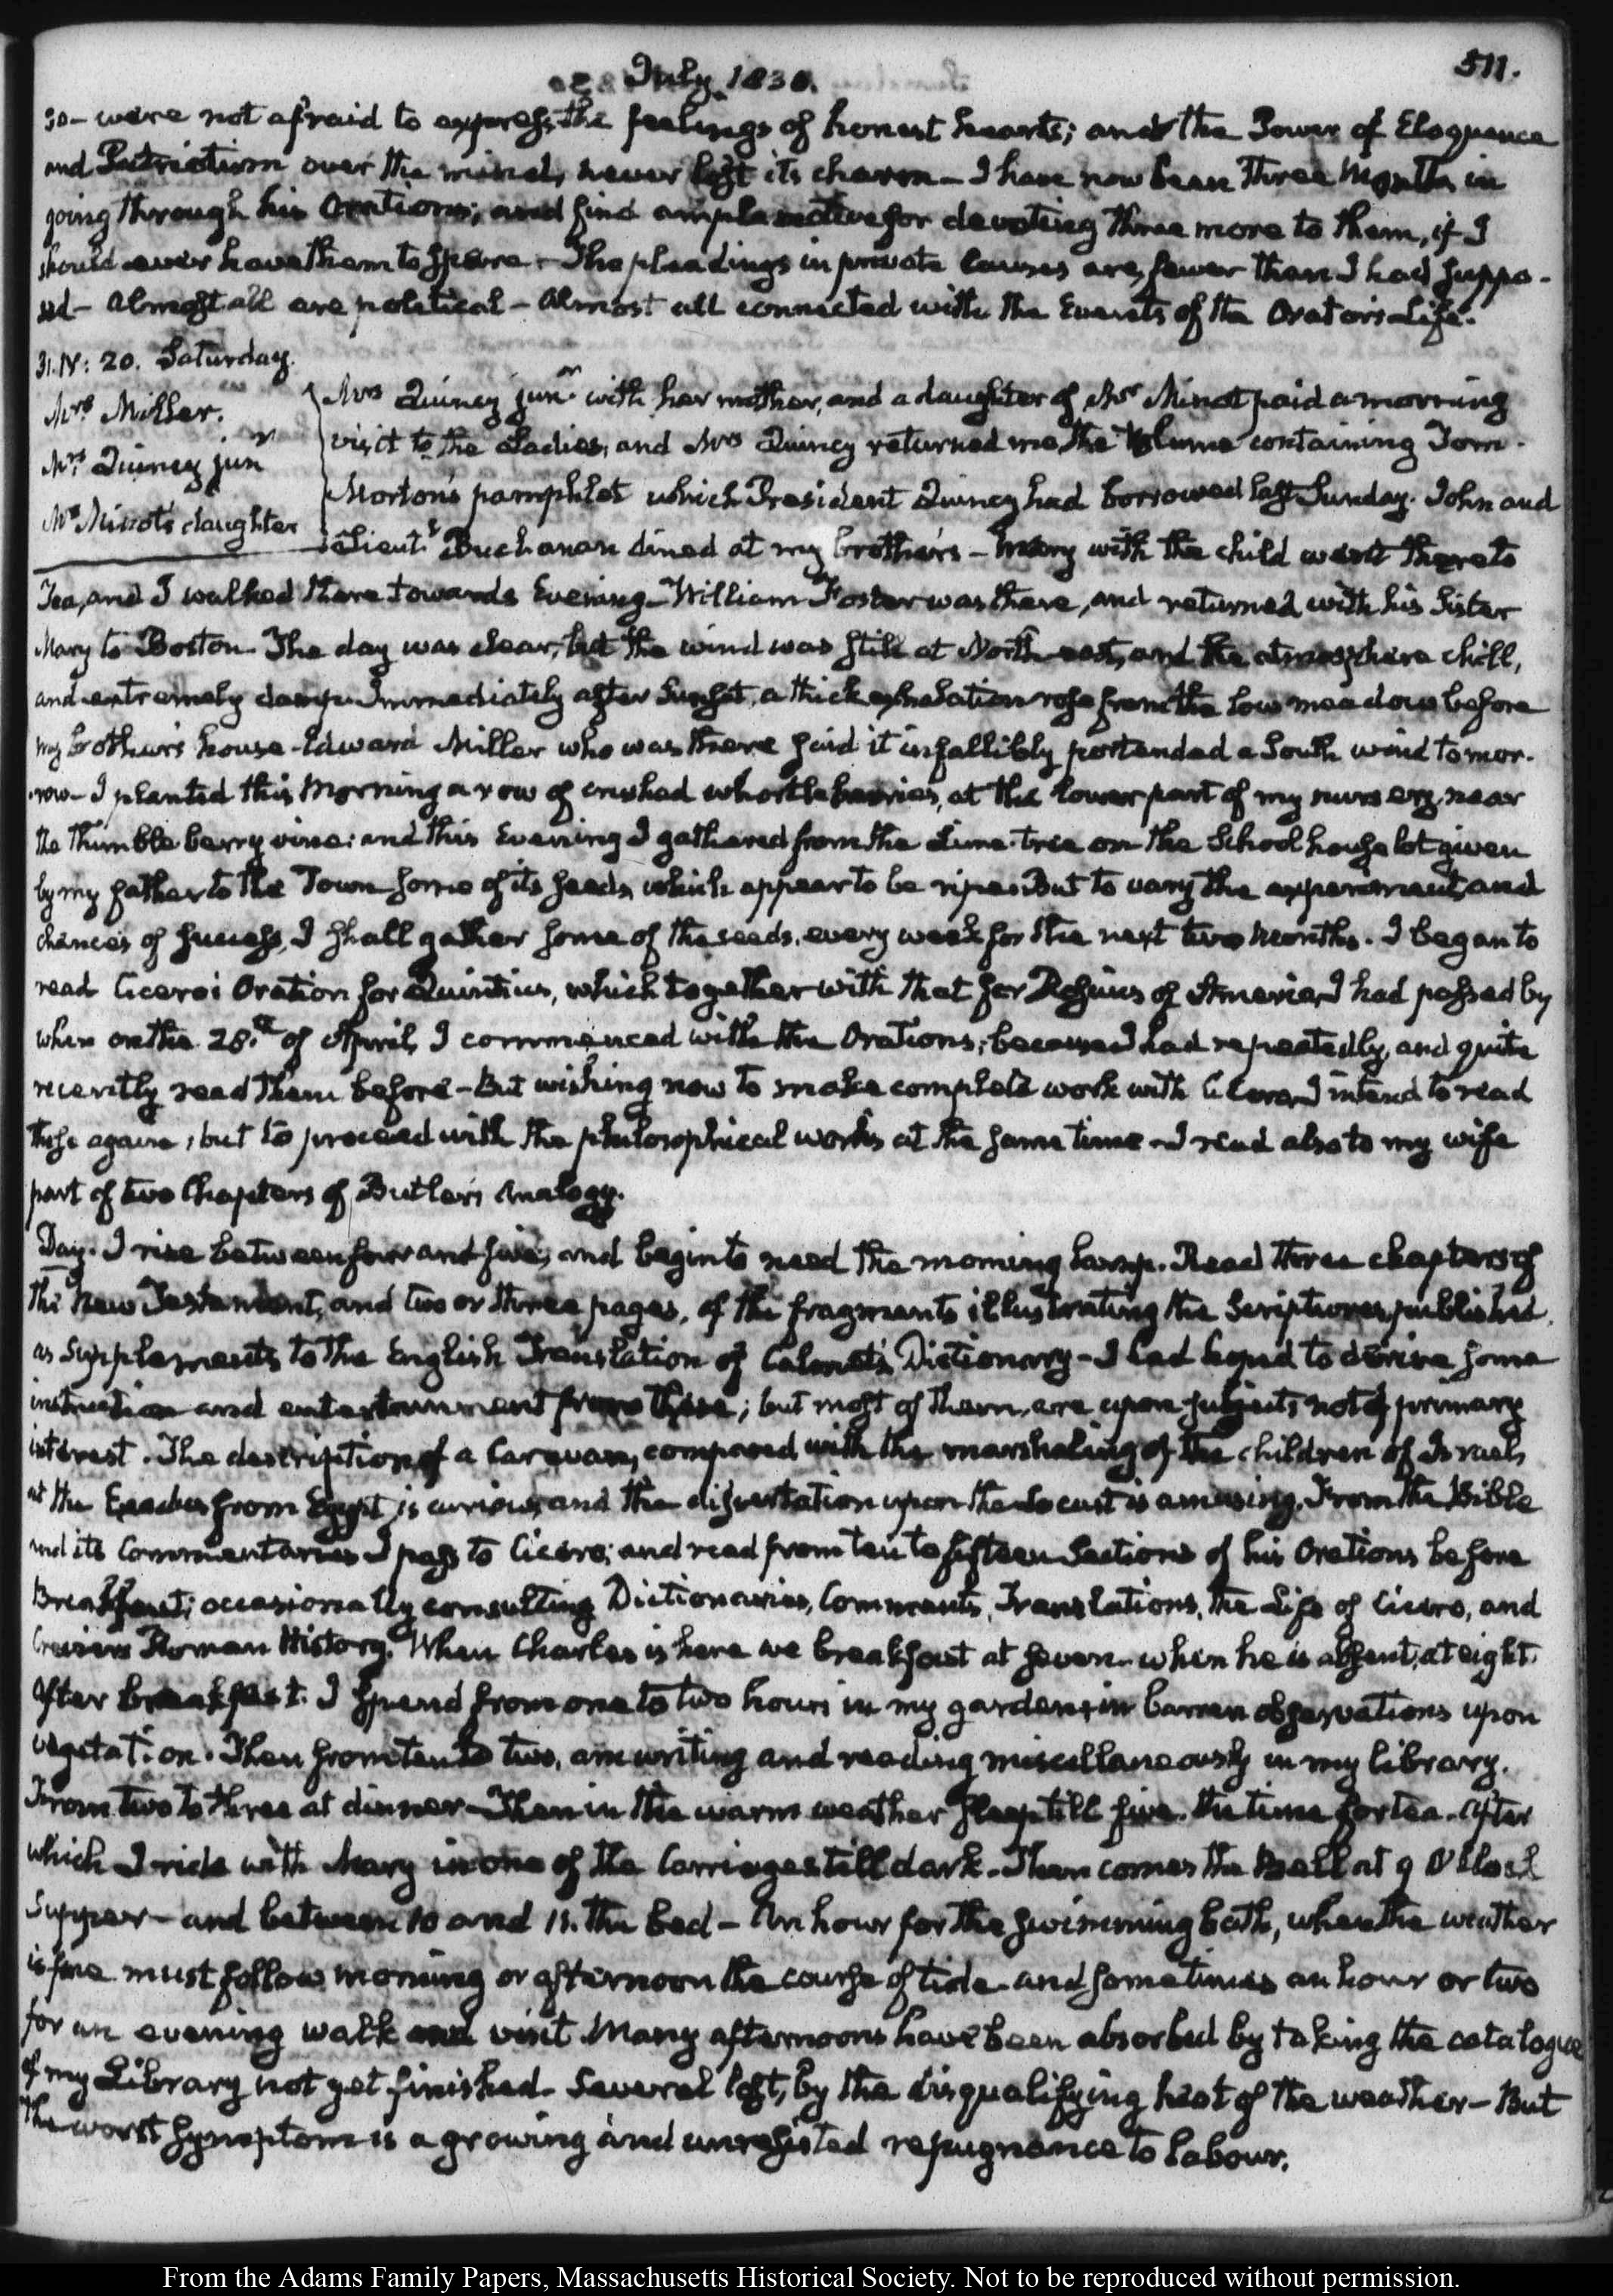 July 1830.
511.
30- were not afraid to express the feelings of honest hearts; and the Power of Eloquence
and Patriotism over the mind, never lost its charm- I have now been three Months in
going through his Orations; and find ample motive for devoting three more to them, if I
should ever have them to spare- The pleadings in private causes are fewer than I had suppo-
sed- almost all are political- almost all connected with the Events of the Orator's Life.
31. IV: 20. Saturday.
Mrs Miller.
Mrs Quincy junr
Mr Minot's daughter
Mrs Quincy junr with her mother, and a daughter of Mr Minot paid a morning
visit to the Ladies, and Mrs Quincy returned me the Volume containing Tom
Morton's pamphlet which President Quincy had borrowed last Sunday. John and
Lieutt Buchanan dined at my brother's- Mary with the child went there to
Tea, and I walked there towards Evening- William Foster was there, and returned with his Sister
Mary to Boston- The day was clear, but the wind was still at North-east, and the atmosphere chill,
and extremely damp- Immediately after Sunset, a thick exhalation rose from the low meadow before
my brother's house- Edward Miller who was there said it infallibly portended a South wind tomor-
row- I planted this Morning a row of crushed whortleberries, at the lower part of my nursery, near
the thimble berry vine: and this Evening I gathered from the Lime-tree on the School house lot given
by my father to the Town some of its seeds, which appear to be ripe. But to vary the experiment, and
chances of success, I shall gather some of the seeds, every week for the next two Months. I began to
read Cicero's Oration for Quintius, which together with that for Roscius of Ameria, I had passed by
when on the 28.th of April, I commenced with the Orations; because I had repeatedly, and quite
recently read them before- But wishing now to make complete work with Cicero, I intend to read
these again, but to proceed with the philosophical works at the same time- I read also to my wife
part of two Chapters of Butler's Analogy.
Day. I rise between four and five; and begin to need the morning lamp. Read three chapters of
the New Testament, and two or three pages, of the fragments illustrating the Scriptures, published
as Supplements to the English Translation of Calmet's Dictionary- I had hoped to derive some
instruction and entertainment from these; but most of them, are upon subjects not of primary
interest. The description of a Caravan, compared with the marshaling of the children of Israel,
at the Exodus from Egypt, is curious, and the dissertation upon the Locust is amusing. From the Bible
and its Commentaries I pass to Cicero; and read from ten to fifteen Sections of his Orations before
Breakfast; occasionally consulting Dictionaries, Comments, Translations, the Life of Cicero, and
Crevier's Roman History. When Charles is here we breakfast at seven- when he is absent, at eight.
After breakfast. I spend from one to two hours in my garden, in barren observations upon
vegetation. Then from ten to two, am writing and reading miscellaneously in my library.
From two to three at dinner- Then in the warm weather sleep till five. the time for tea. After
which I ride with Mary in one of the Carriages till dark. Then comes the Bell at 9 O'Clock
Supper- and between 10 and 11. the bed- An hour for the swimming bath, when the weather
is fine must follow morning or afternoon the course of tide- and sometimes an hour or two
for an evening walk and visit. Many afternoons have been absorbed by taking the catalogue
of my Library not yet finished- Several lost, by the disqualifying heat of the weather- But
the worst symptom is a growing and unresisted repugnance to labour.
From the Adams Family Papers, Massachusetts Historical Society. Not to be reproduced without permission.